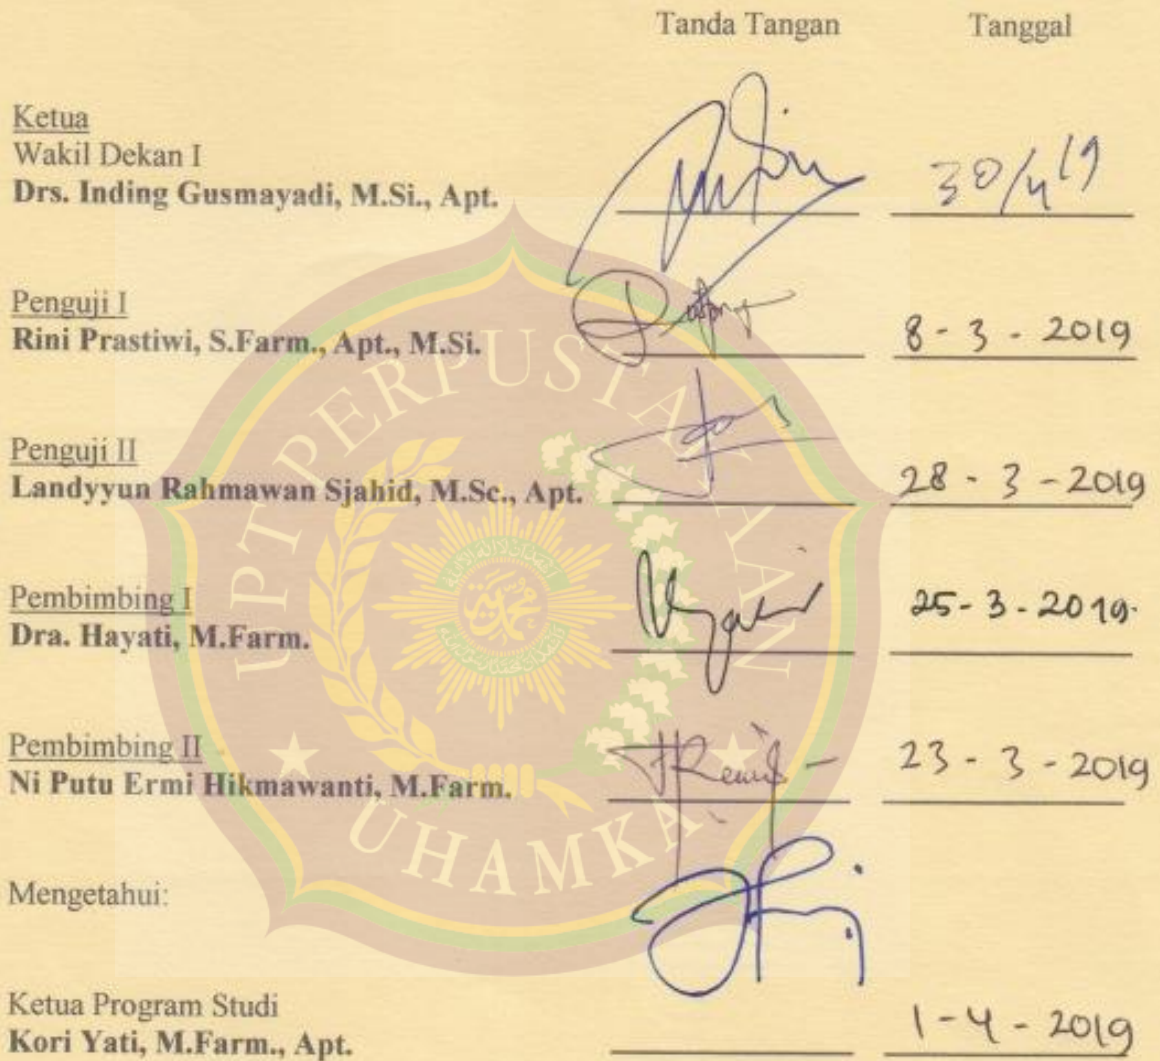 Tanda Tangan Tanggal
Ketua
Wakil Dekan I
Drs. Inding Gusmayadi, M.Si., Apt.
30/4 19
Penguji I
Rini Prastiwi, S.Farm., Apt., M.Si.
8 - 3 - 2019
Penguji II
Landyyun Rahmawan Sjahid, M.Sc., Apt.
28 - 3 - 2019
Pembimbing I
Dra. Hayati, M.Farm.
25 - 3 - 2019.
Pembimbing II
Ni Putu Ermi Hikmawanti, M.Farm.
23 - 3 - 2019
Mengetahui:
Ketua Program Studi
Kori Yati, M.Farm., Apt.
1 - 4 - 2019
UPT PERPUSTAKAAN
UHAMKA